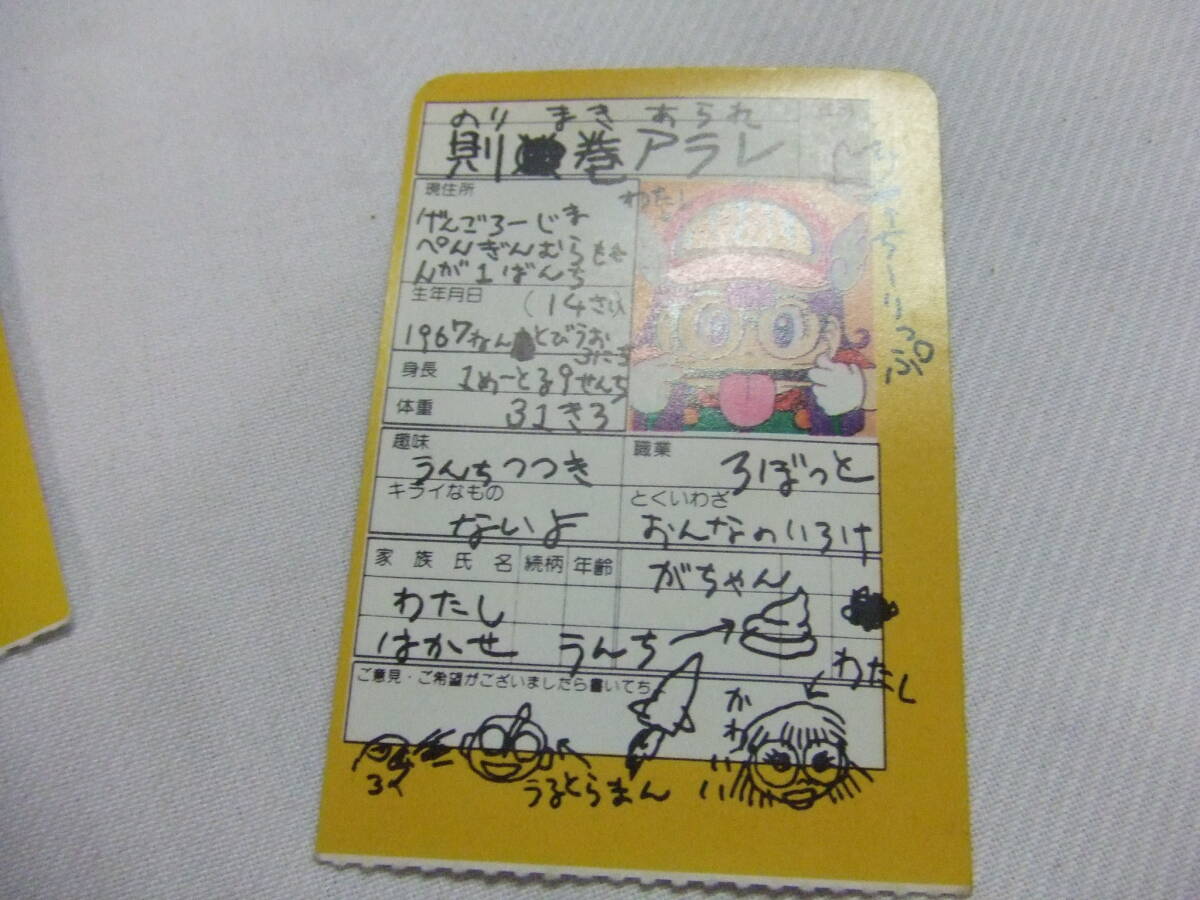 のりまきあられ
則巻アラレ
現住所
げんごろーじま
ぺんぎんむら
んが1ばんち
わたし
生年月日
(14さい)
1967ねん とびうお
身長
1めーとる9せんち
体重
31きろ
趣味
うんちつつき
職業
ろぼっと
キライなもの
ないよ
とくいわざ
おんなのいろけ
家族氏名 続柄 年齢
がちゃん
わたし
はかせ
うんち
ご意見・ご希望がございましたら書いてち
わたし
かわいい
うるとらまん